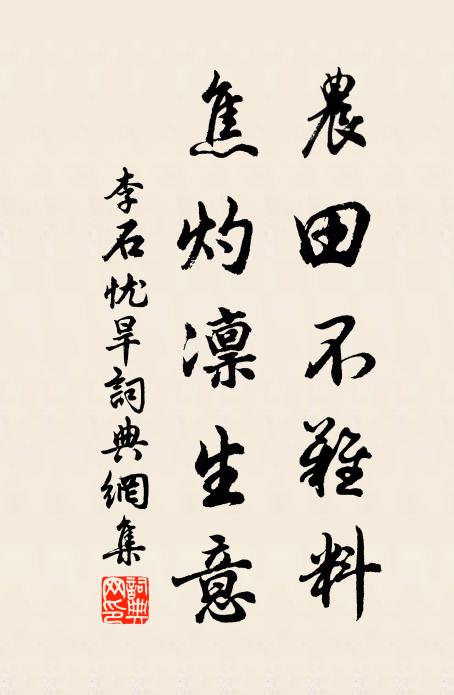 農田不難料
焦灼凛生意
李石忧旱詞典網集
詞典网印